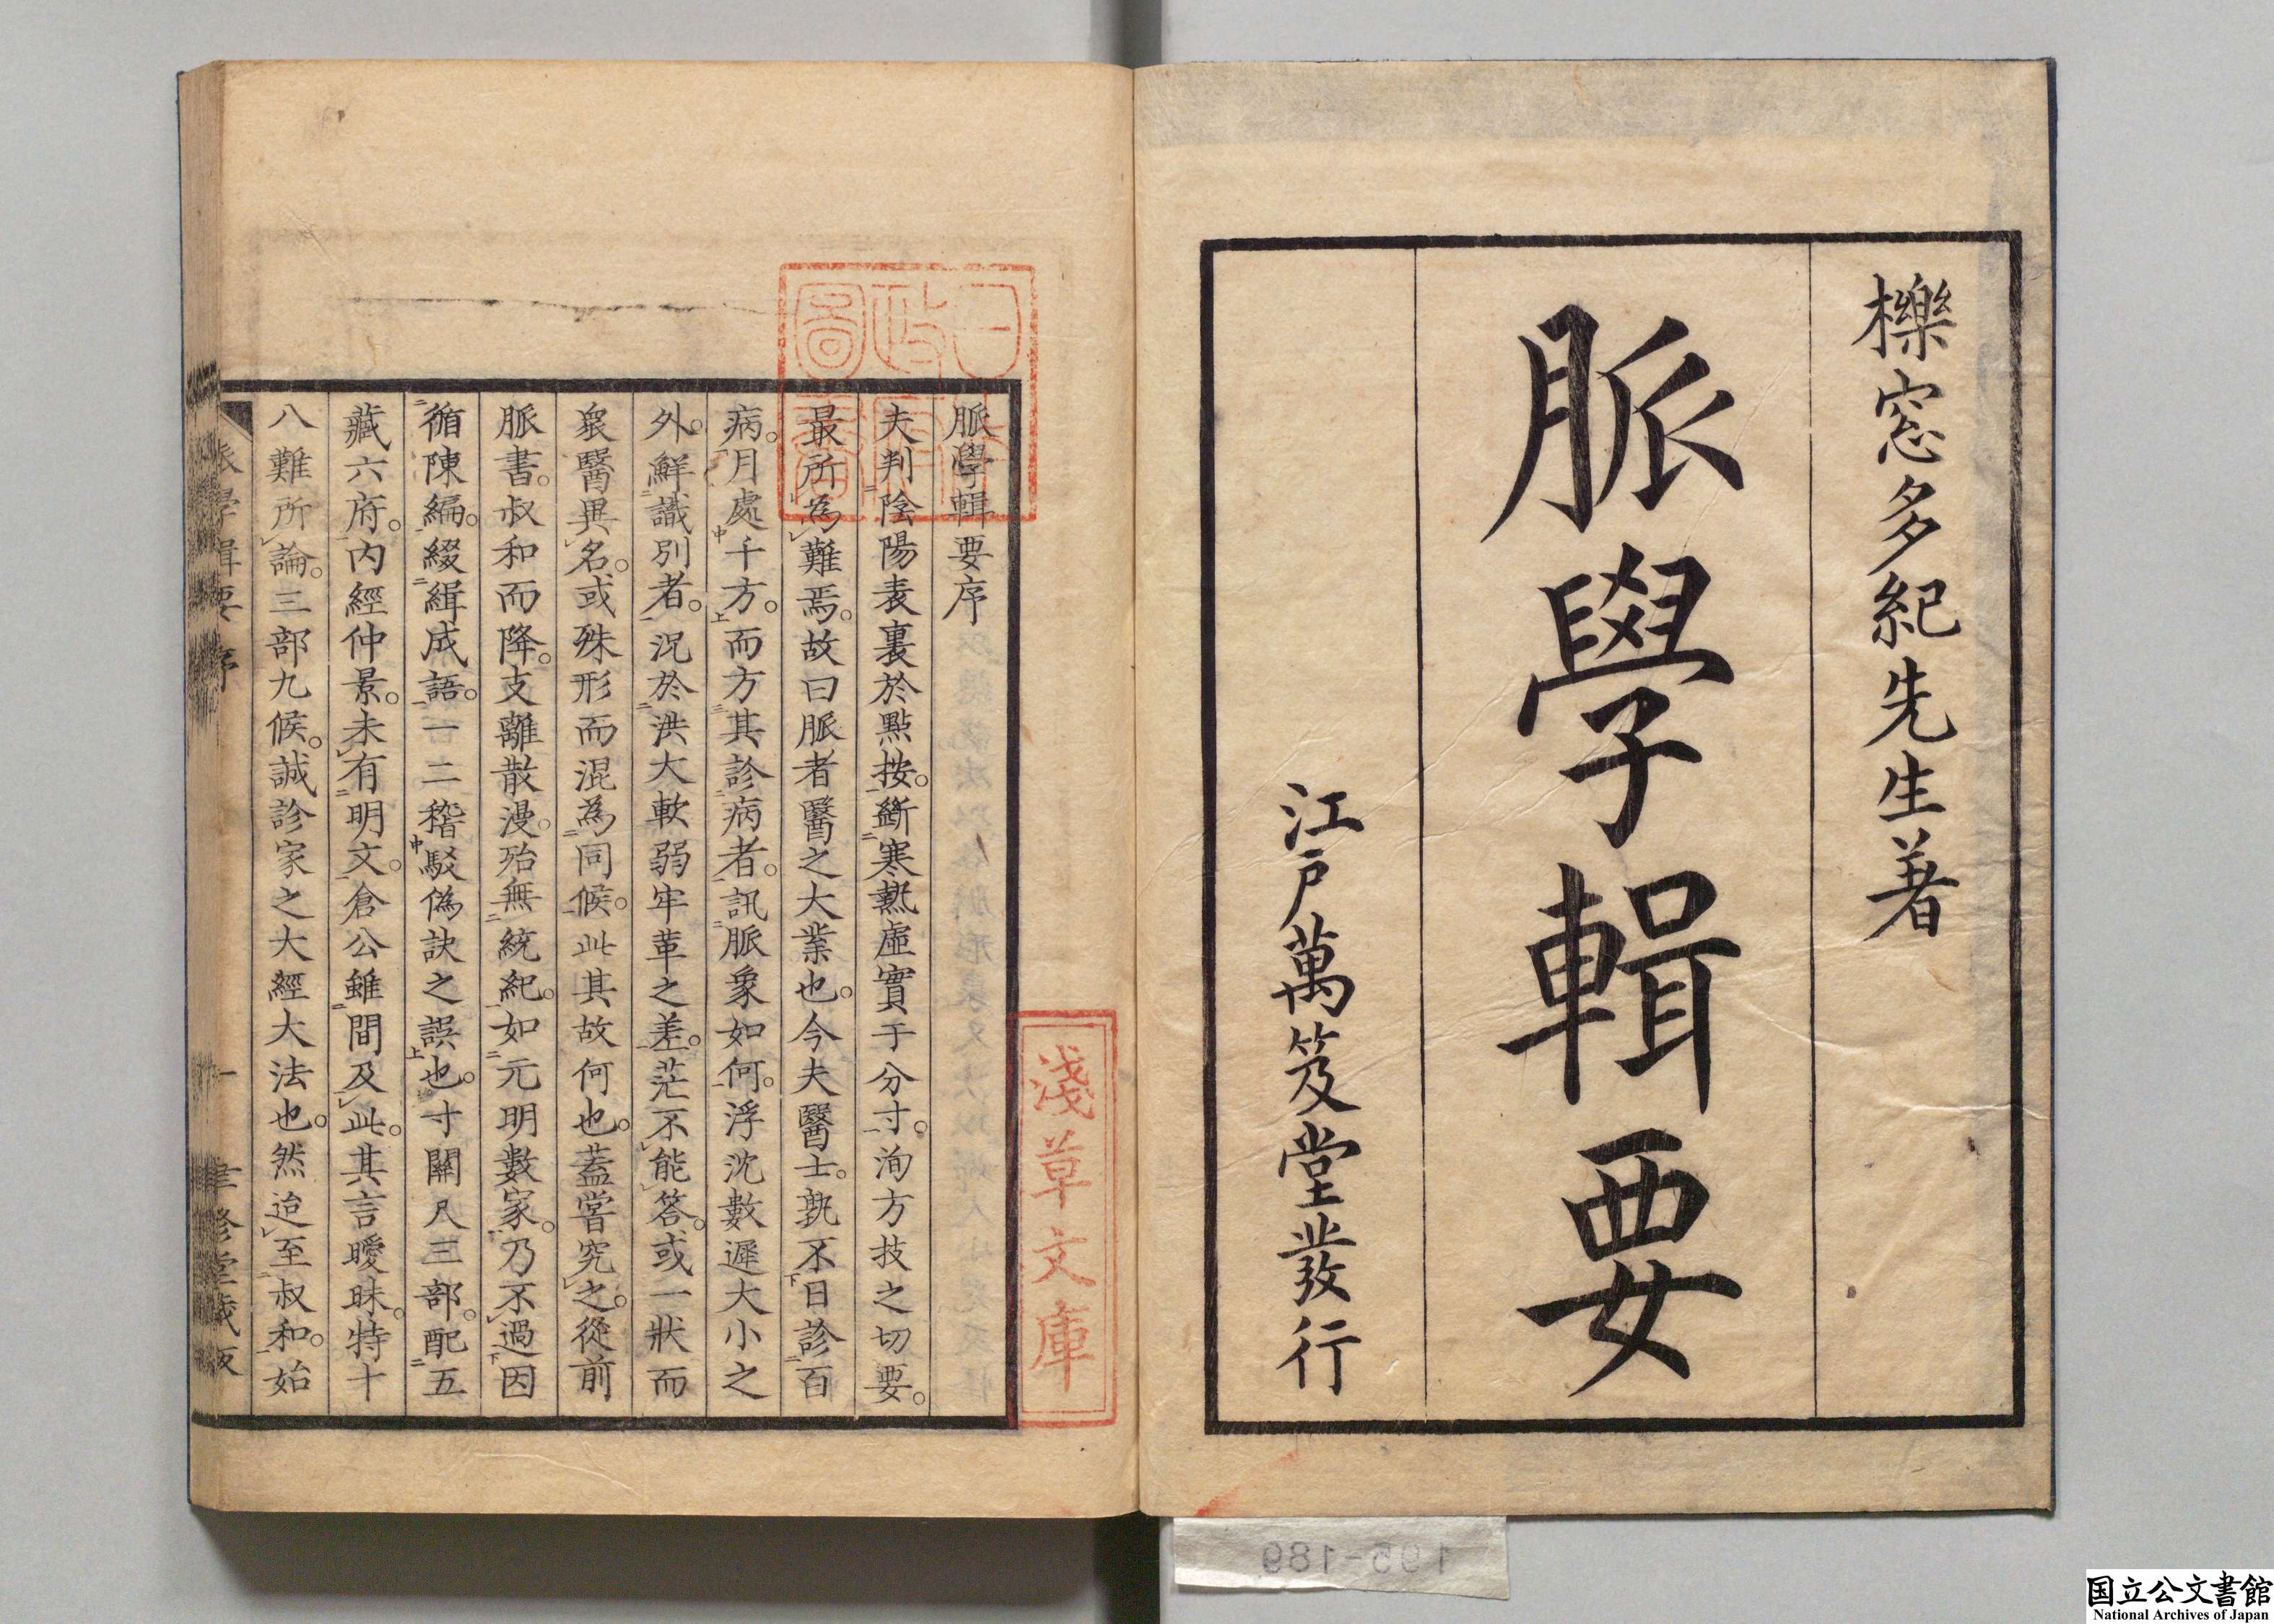 櫟窓多紀先生著
脈學輯要
江戸萬笈堂發行
脈學輯要序
夫判陰陽表裏於點按。斷寒熱虛實于分寸。洵方技之切要。
最所為難焉。故曰脈者醫之大業也。今夫醫士。孰不日診百
病。月處千方。而方其診病者。訊脈象如何。浮沈數遲大小之
外。鮮識別者。況於洪大軟弱牢革之差。茫不能答。或一狀而
衆醫異名。或殊形而混為同候。此其故何也。蓋嘗究之。從前
脈書。叔和而降。支離散漫。殆無統紀。如元明數家。乃不過因
循陳編。綴緝成語。一二稽駁偽訣之誤也。寸關尺三部。配五
藏六府。內經仲景。未有明文。倉公雖間及此。其言曖昧。特十
八難所論。三部九候。誠診家之大經大法也。然迨至叔和。始
脈學輯要序
一
聿修堂藏版
淺草文庫
日本
政府
圖書
195-189
国立公文書館
National Archives of Japan